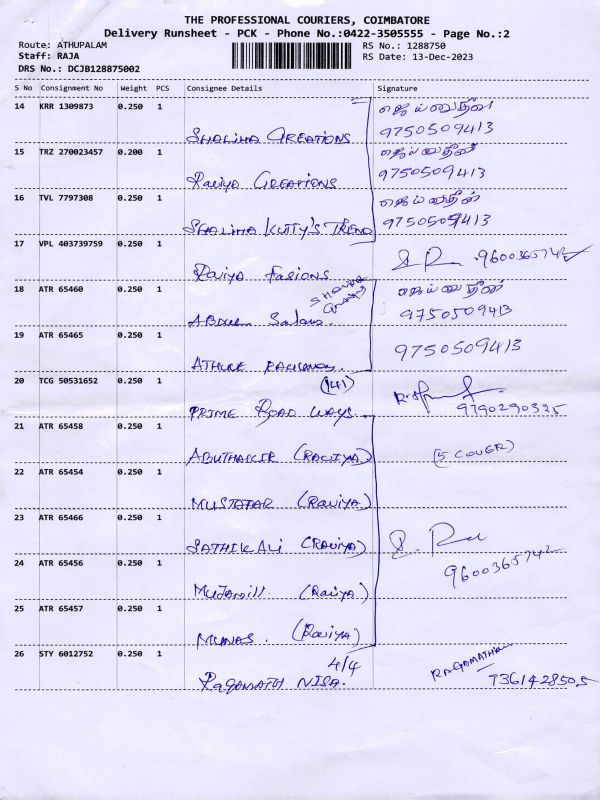 THE PROFESSIONAL COURIERS, COIMBATORE
Delivery Runsheet - PCK - Phone No.:0422-3505555 - Page No.:2
Route: ATHUPALAM RS No.: 1288750
Staff: RAJA RS Date: 13-Dec-2023
DRS No.: DCJB128875002
S No Consignment No Weight PCS Consignee Details Signature
14 KRR 1309873 0.250 1
SHALIHA CREATIONS 9750509413
15 TRZ 270023457 0.200 1
Raviya CREATIONS 9750509413
16 TVL 7797308 0.250 1
SHALIHA KUTTY'S TREND 9750509413
17 VPL 403739759 0.250 1
Raviya Fasions 9600365742
18 ATR 65460 0.250 1
ABDUL Salam 9750509413
19 ATR 65465 0.250 1
9750509413
20 TCG 50531652 0.250 1 (141)
PRIME ROAD WAYS 9790290325
21 ATR 65458 0.250 1
ABUTHAKIR (RAVIYA) (5 COVER)
22 ATR 65454 0.250 1
MUSTAFAR (Raviya)
23 ATR 65466 0.250 1
SATHIK ALI (RAVIYA)
24 ATR 65456 0.250 1 9600365742
(Raviya)
25 ATR 65457 0.250 1
MUNAS. (Raviya)
26 STY 6012752 0.250 1 4/4
RAGAMATH NISA. 7361428505